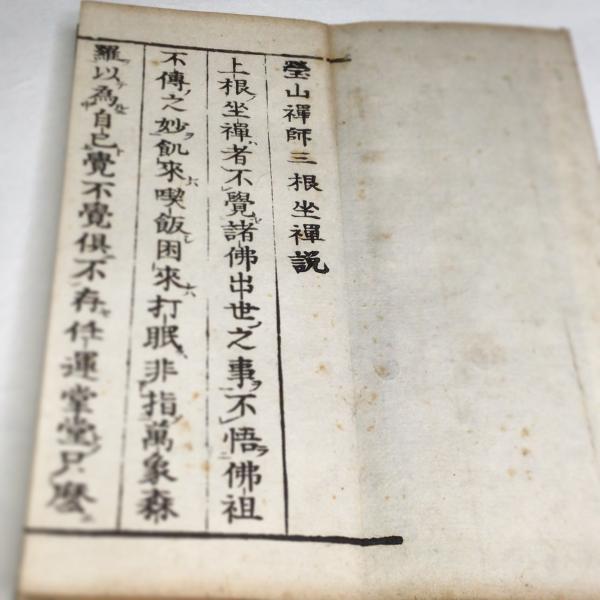 瑩山禪師三根坐禪説
上根坐禪者不覺諸佛出世之事不悟佛祖
不傳之妙飢來喫飯困來打眠非指萬象森
羅以為自己覺不覺俱不存任運堂堂只麼